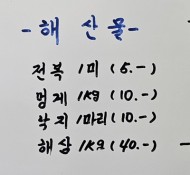 -해 산 물-
전복 1미 (5.-)
멍게 1kg (10.-)
낙지 1마리 (10.-)
해삼 1kg (40.-)